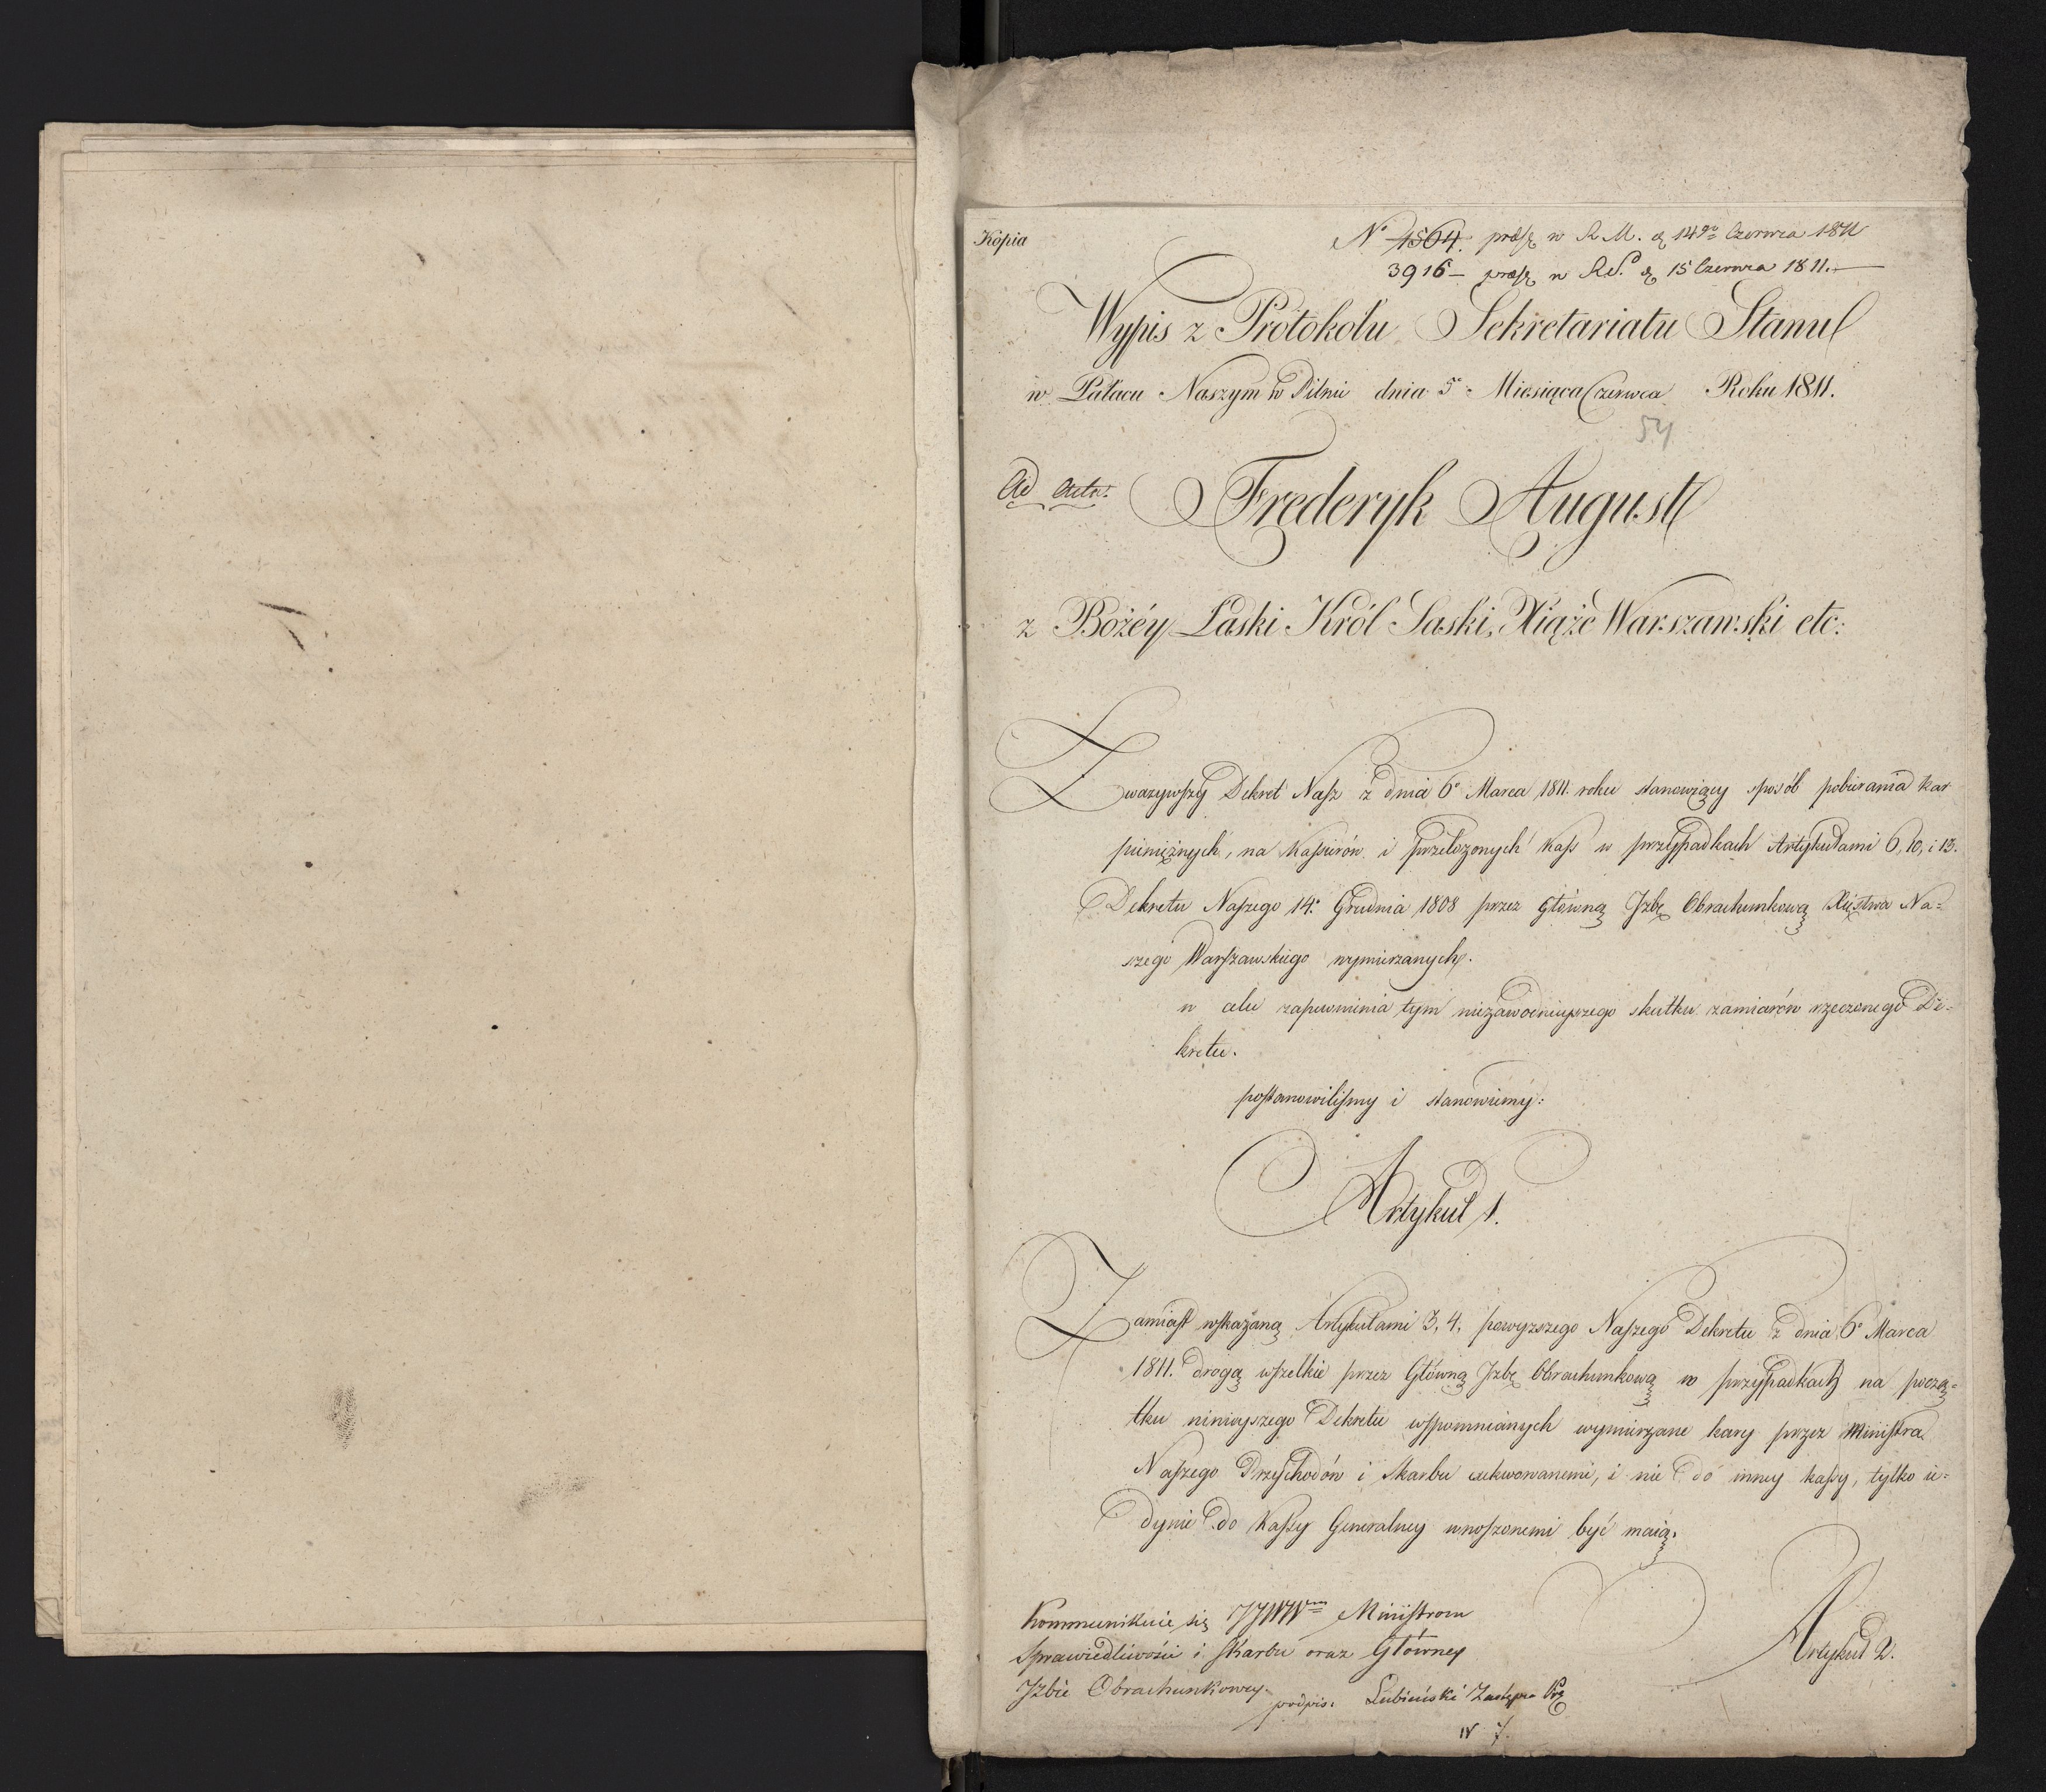 Kopia
N° 4564. prdsą w R M. d 14go Czerwca 1811
3916 – prdsą w RS. d 15 Czerwca 1811. –
Wypis z Protokołu Sekretariatu Stanu
w Pałacu Naszym w Pilnie dnia 5° Miesiąca Czerwca Roku 1811.
54
Ad Acta.
Frederyk August
z Bożéy Łaski Król Saski, Xiążę Warszawski etc:
Zważywszy Dekret Nasz z dnia 6° Marca 1811. roku stanowiący sposób pobierania kar
pieniężnych, na Kassierów i przełożonych Kass w przypadkach Artykułami 6, 10, i 13.
Dekretu Naszego 14° Grudnia 1808 przez Główną Jzbę Obrachunkową Xięstwa Na=
szego Warszawskiego wymierzanych.
w celu zapewnienia tym niezawodnieyszego skutku zamiarów rzeczonego De=
kretu.
postanowiliśmy i stanowiemy:
Artykuł 1.
Zamiast wskazaną Artykułami 3, 4, powyższego Naszego Dekretu z dnia 6° Marca
1811. drogą wszelkie przez Główną Jzbę Obrachunkową w przypadkach na począ=
tku ninieyszego Dekretu wspomnianych wymierzane kary przez Ministra
Naszego Przychodów i Skarbu exekwowanemi, i nie do inney kassy, tylko ie=
dynie do Kassy Generalney wnoszonemi być maią.
Artykuł 2.
Kommunikuie się JJWWm Ministrom
Sprawiedliwości i Skarbu oraz Główney
Jzbie Obrachunkowey.
podpis: Łubieński Zastępca